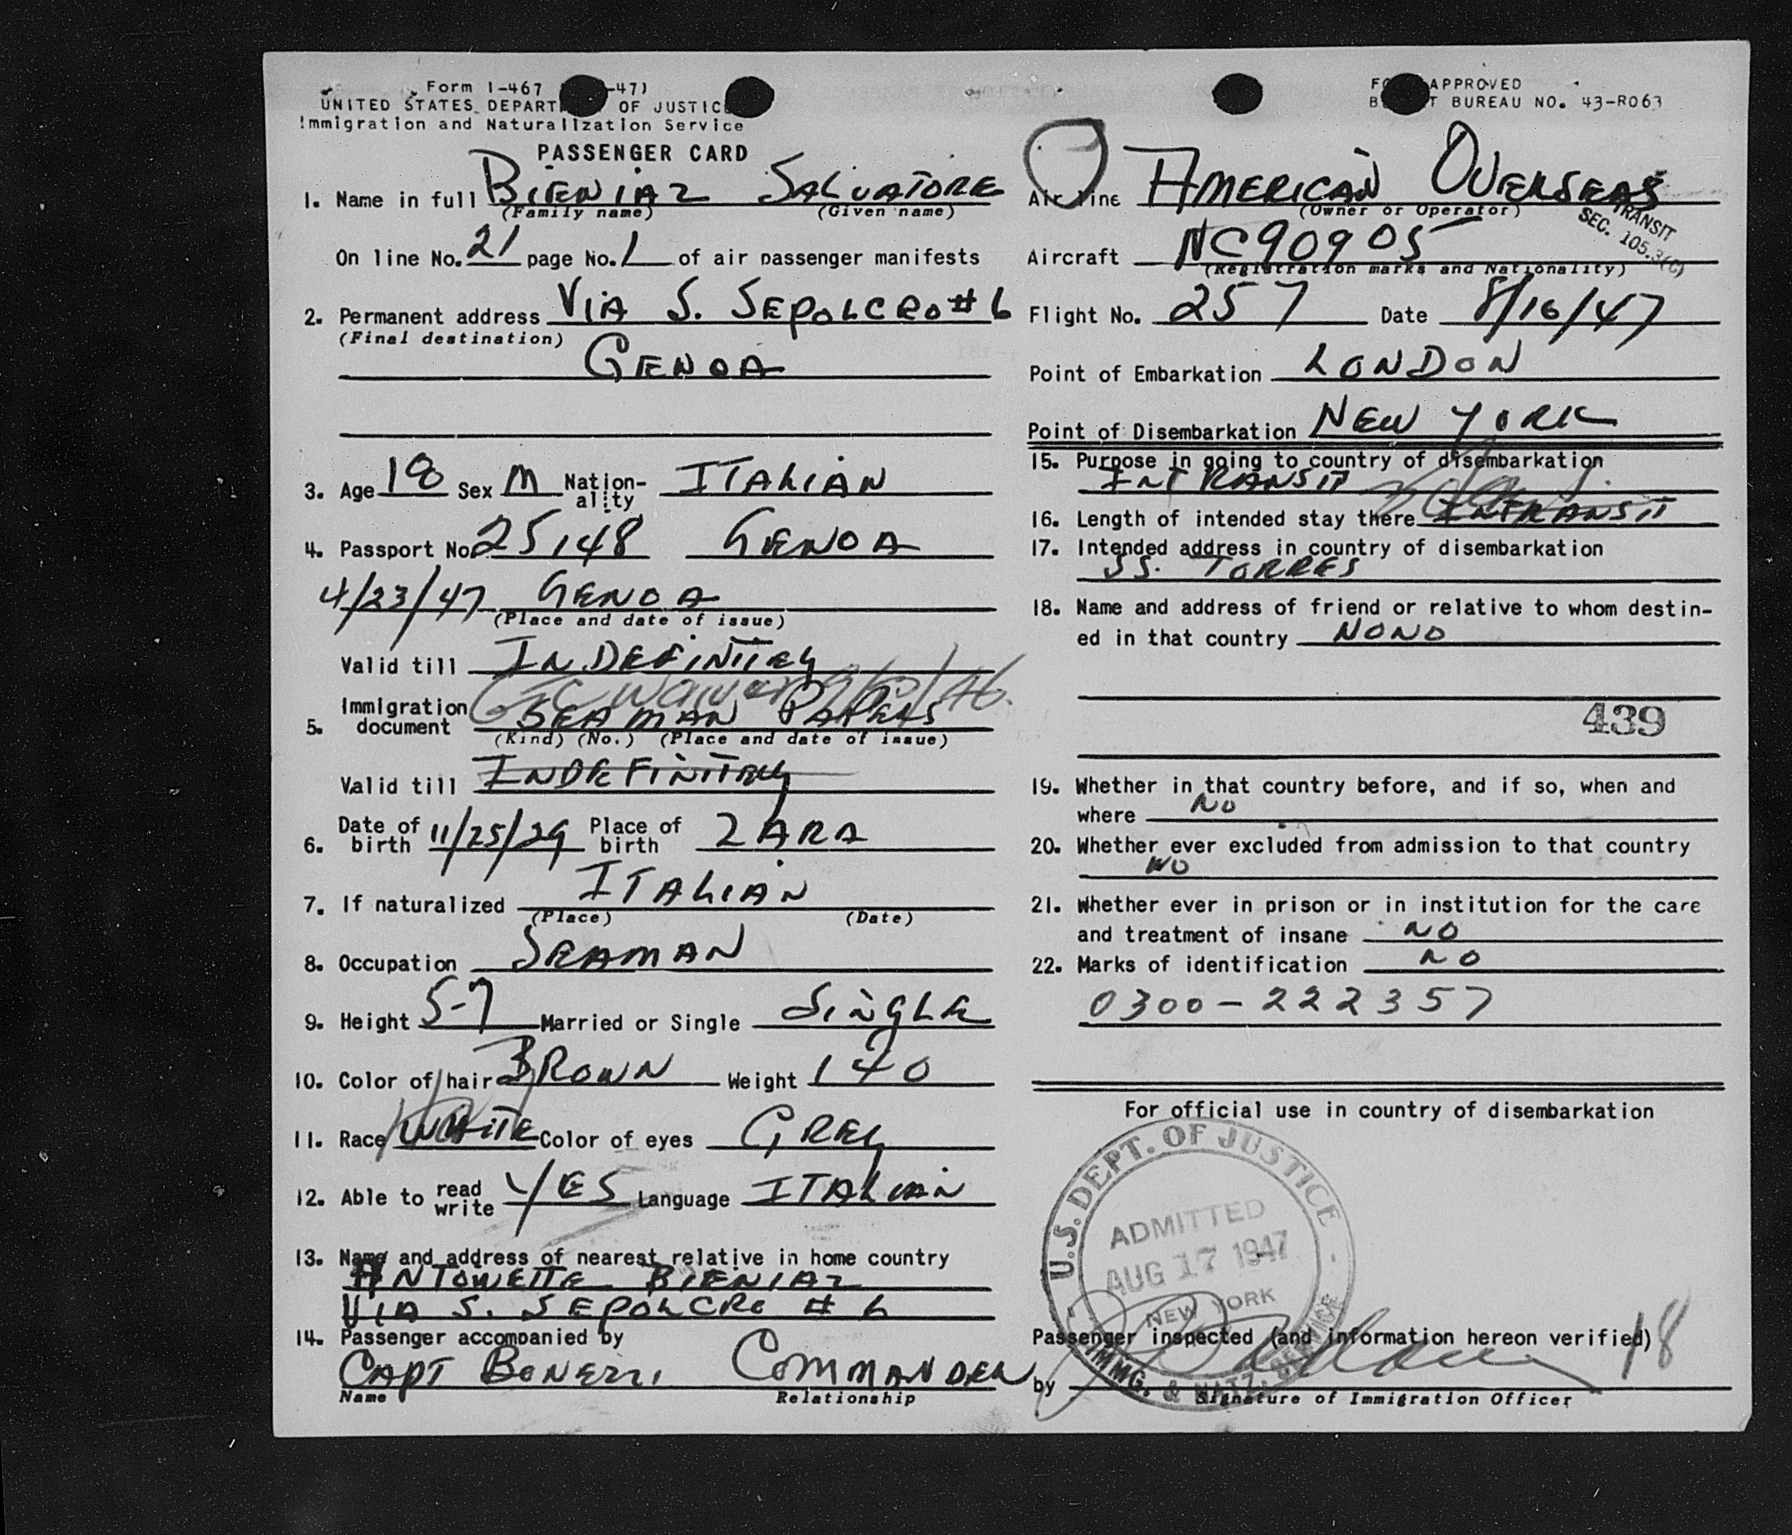 Form I-467 -47)
UNITED STATES DEPART OF JUSTIC
Immigration and Naturalization Service
PASSENGER CARD
1. Name in full BIENIAZ SALVATORE
(Family name) (Given name)
On line No. 21 page No. 1 of air passenger manifests
2. Permanent address VIA S. SEPOLCRO # 6
(Final destination)
GENOA
3. Age 18 Sex M Nation-ality ITALIAN
4. Passport No. 25148 GENOA
4/23/47 GENOA
(Place and date of issue)
Valid till INDEFINITELY
GTC waiver
5. Immigration document SEAMAN PAPERS
(Kind) (No.) (Place and date of issue)
Valid till INDEFINITELY
6. Date of birth 11/25/29 Place of birth ZARA
7. If naturalized ITALIAN
(Place) (Date)
8. Occupation SEAMAN
9. Height 5-7 Married or Single SINGLE
10. Color of hair BROWN Weight 140
11. Race WHITE Color of eyes GREY
12. Able to read write YES Language ITALIAN
13. Name and address of nearest relative in home country
ANTOWETTE BIENIAZ
VIA S. SEPOLCRO # 6
14. Passenger accompanied by
CAPT BONEZZI COMMANDER
Name Relationship
APPROVED
T BUREAU NO. 43-R063
Air line AMERICAN OVERSEAS
(Owner or Operator)
TRANSIT
SEC. 105.3(C)
Aircraft NC90905
(Registration marks and Nationality)
Flight No. 257 Date 8/16/47
Point of Embarkation LONDON
Point of Disembarkation NEW YORK
15. Purpose in going to country of disembarkation
INTRANSIT
16. Length of intended stay there INTRANSIT
17. Intended address in country of disembarkation
SS. TORRES
18. Name and address of friend or relative to whom destin-
ed in that country NONO
439
19. Whether in that country before, and if so, when and
where NO
20. Whether ever excluded from admission to that country
NO
21. Whether ever in prison or in institution for the care
and treatment of insane NO
22. Marks of identification NO
0300-222357
For official use in country of disembarkation
U.S. DEPT. OF JUSTICE
ADMITTED
AUG 17 1947
NEW YORK
IMMG. & NATZ. SERVICE
Passenger inspected (and information hereon verified) 18
by
Signature of Immigration Officer